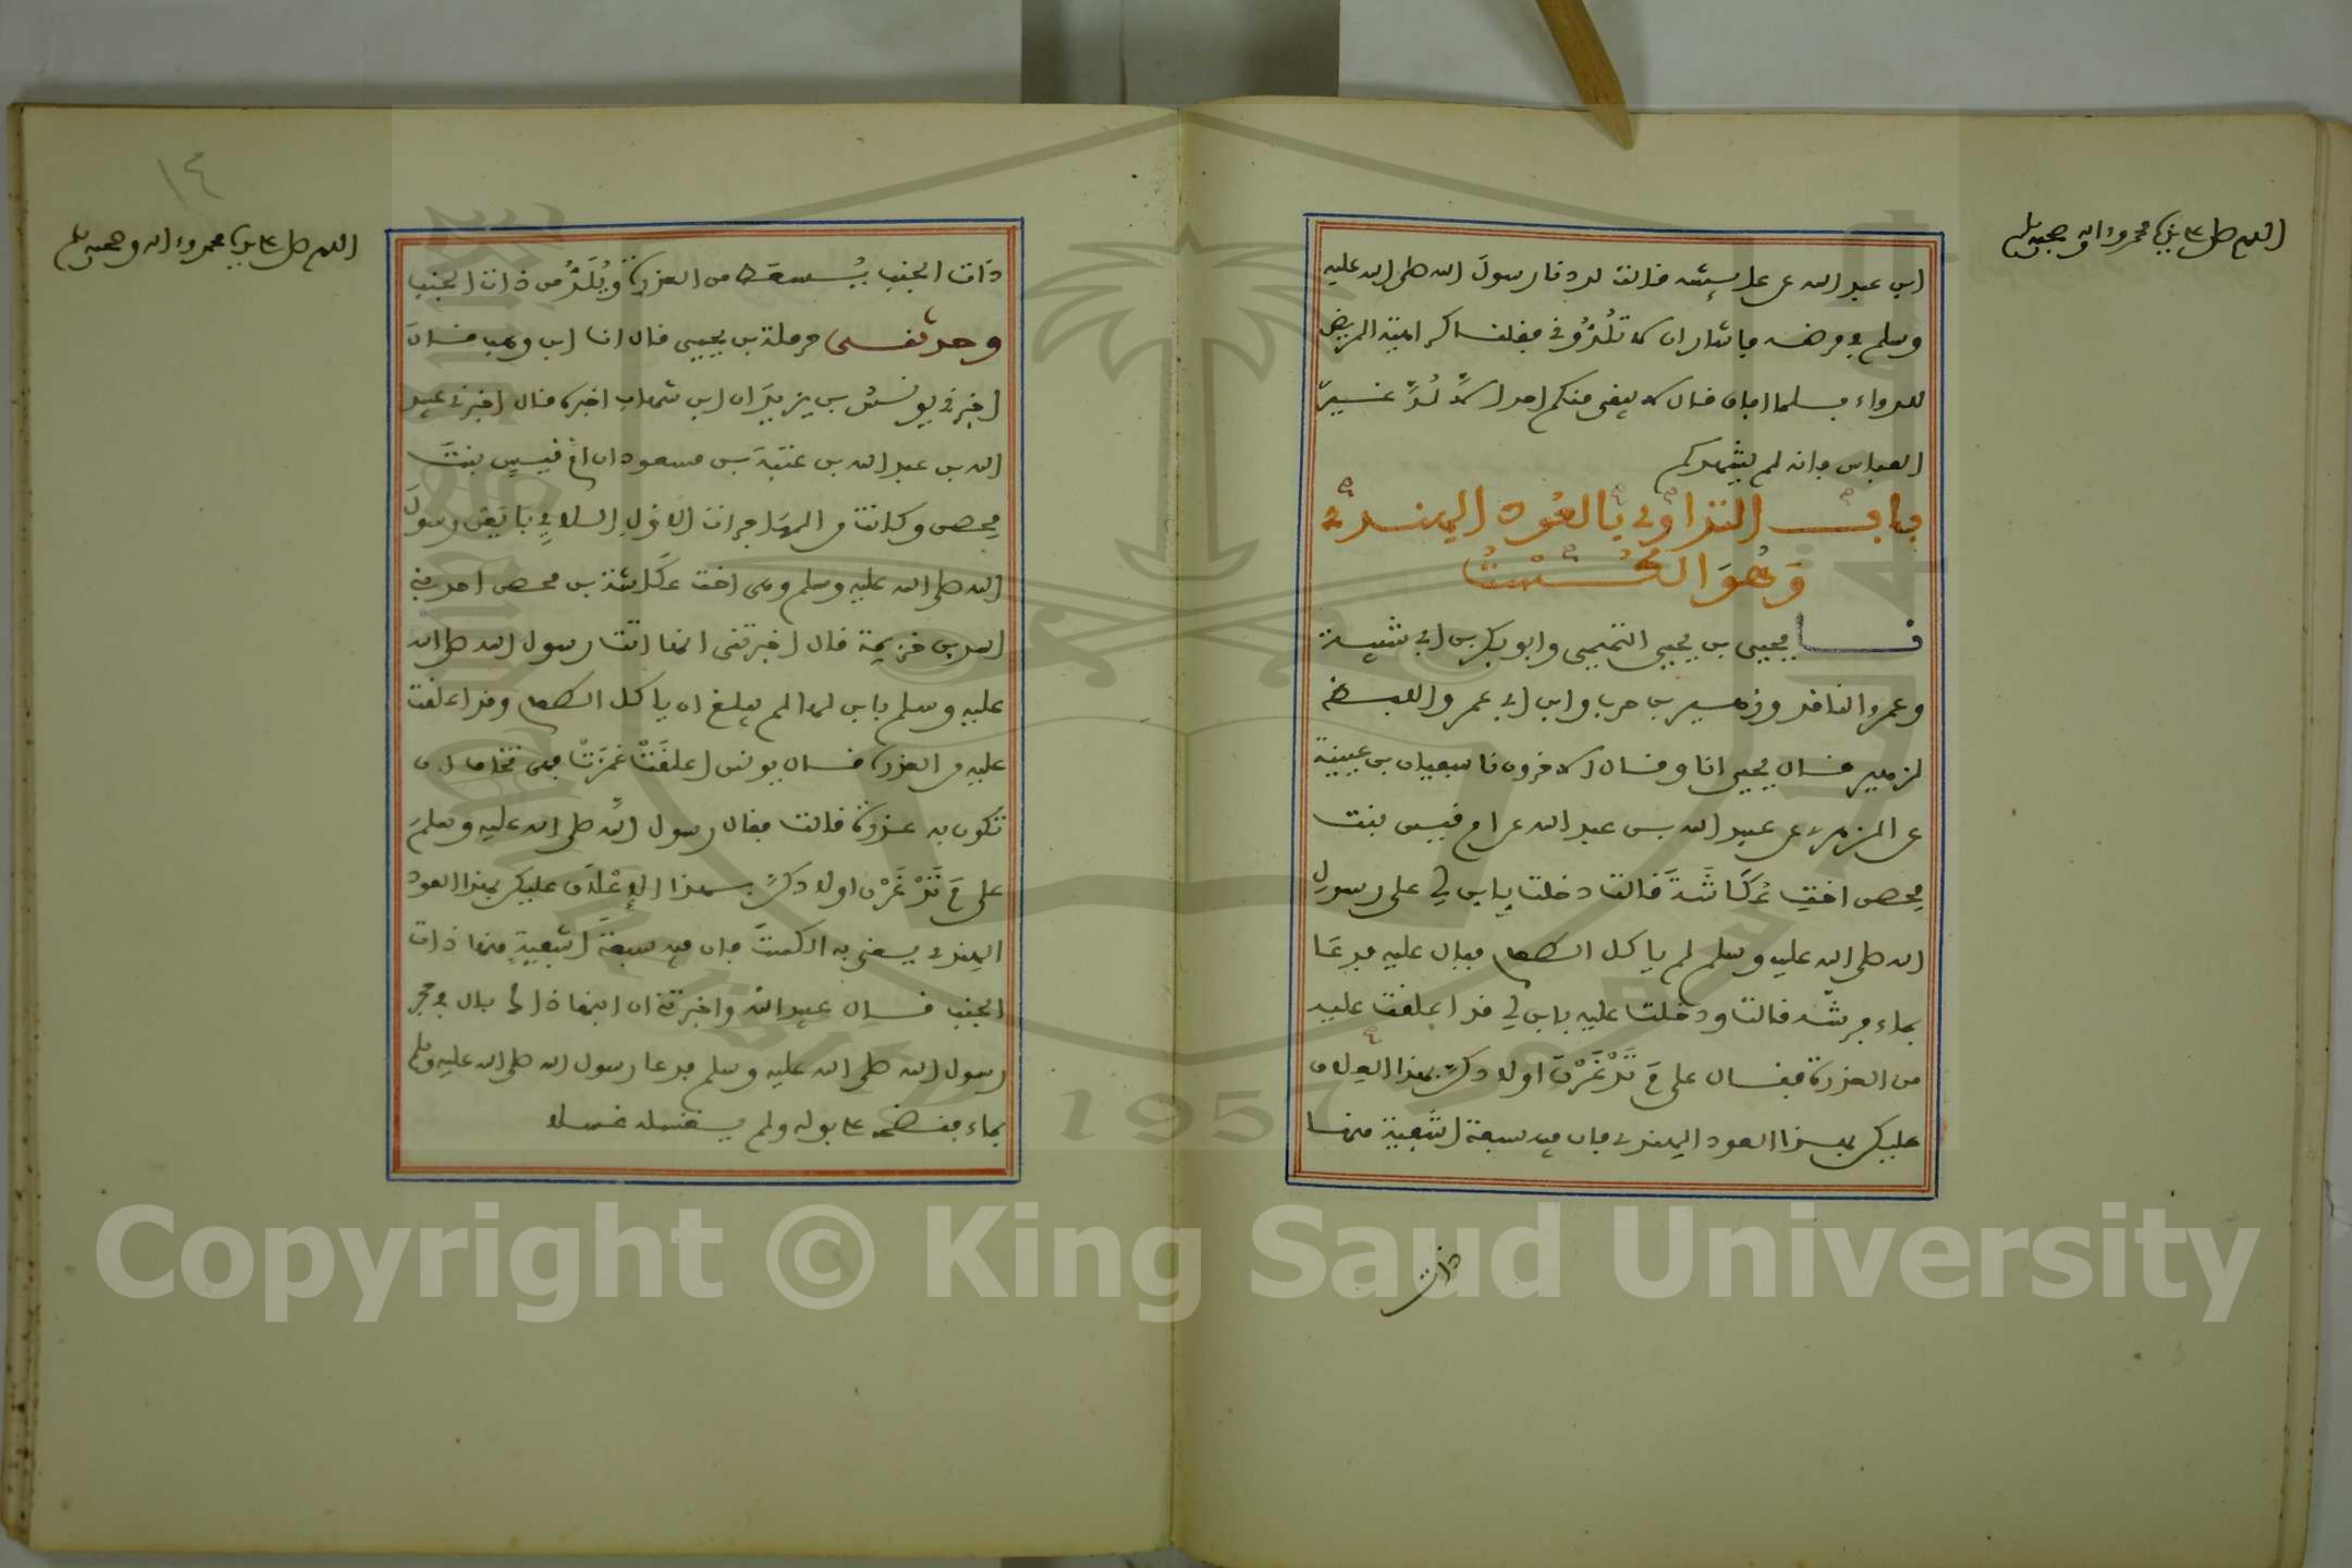 اللهم صل على سيدنا محمد وءاله وصحبه وسلم
ابن عبد الله عن عايشة قالت لددنا رسول الله صلى الله عليه
وسلم في مرضه فاشار ان لا تلدوني فقلنا كراهية المريض
للدواء فلما افاق قال لا يبقى منكم احد الا لد غير
العباس فانه لم يشهدكم
باب التداوي بالعود الهندي
وهو الكست
نا يحيى بن يحيى التميمي وابو بكر بن ابي شيبة
وعمرو الناقد وزهير بن حرب وابن ابي عمر واللفظ
لزهير قال يحيى انا وقال الاخرون نا سفيان بن عيينة
عن الزهري عن عبيد الله بن عبد الله عن ام قيس بنت
محصن اخت عكاشة قالت دخلت بابن لي على رسول
الله صلى الله عليه وسلم لم ياكل الطعام فبال عليه فدعا
بماء فرشه قالت ودخلت عليه بابن لي قد اعلقت عليه
من العذرة فقال على م تدغرن اولادكن بهذا العلاق
عليكن بهذا العود الهندي فان فيه سبعة اشفية منها
ذات
١٤
اللهم صل على سيدنا محمد وءاله وصحبه وسلم
ذات الجنب يسعط من العذرة ويلد من ذات الجنب
وحدثني حرملة بن يحيى قال انا ابن وهب قال
اخبرني يونس بن يزيد ان ابن شهاب اخبره قال اخبرني عبيد
الله بن عبد الله بن عتبة بن مسعود ان ام قيس بنت
محصن وكانت من المهاجرات الاول اللاتي بايعن رسول
الله صلى الله عليه وسلم وهي اخت عكاشة بن محصن احد بني
اسد بن خزيمة قال اخبرتني انها اتت رسول الله صلى الله
عليه وسلم بابن لها لم يبلغ ان ياكل الطعام وقد اعلقت
عليه من العذرة قال يونس اعلقت غمزت فهي تخاف ان
تكون به عذرة قالت فقال رسول الله صلى الله عليه وسلم
على م تدغرن اولادكن بهذا الاعلاق عليكن بهذا العود
الهندي يعني به الكست فان فيه سبعة اشفية منها ذات
الجنب قال عبيد الله واخبرتني ان ابنها ذاك بال في حجر
رسول الله صلى الله عليه وسلم فدعا رسول الله صلى الله عليه وسلم
بماء فنضحه على بوله ولم يغسله غسلا
Copyright © King Saud University
1957